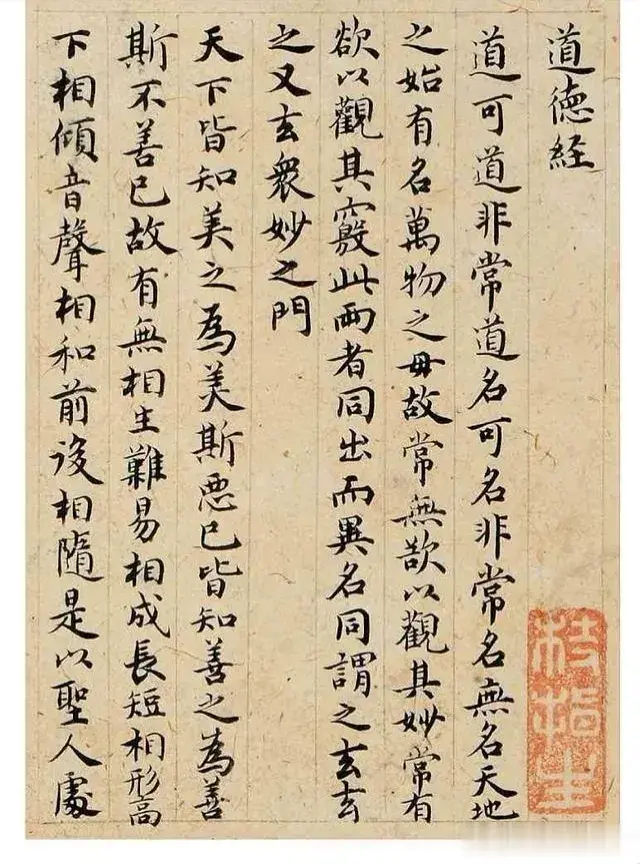 道德経
道可道非常道名可名非常名無名天地
之始有名萬物之毋故常無欲以觀其妙常有
欲以觀其竅此兩者同出而異名同謂之玄玄
之又玄衆妙之門
天下皆知美之為美斯惡已皆知善之為善
斯不善已故有無相生難易相成長短相形高
下相傾音聲相和前後相隨是以聖人處
枝指生